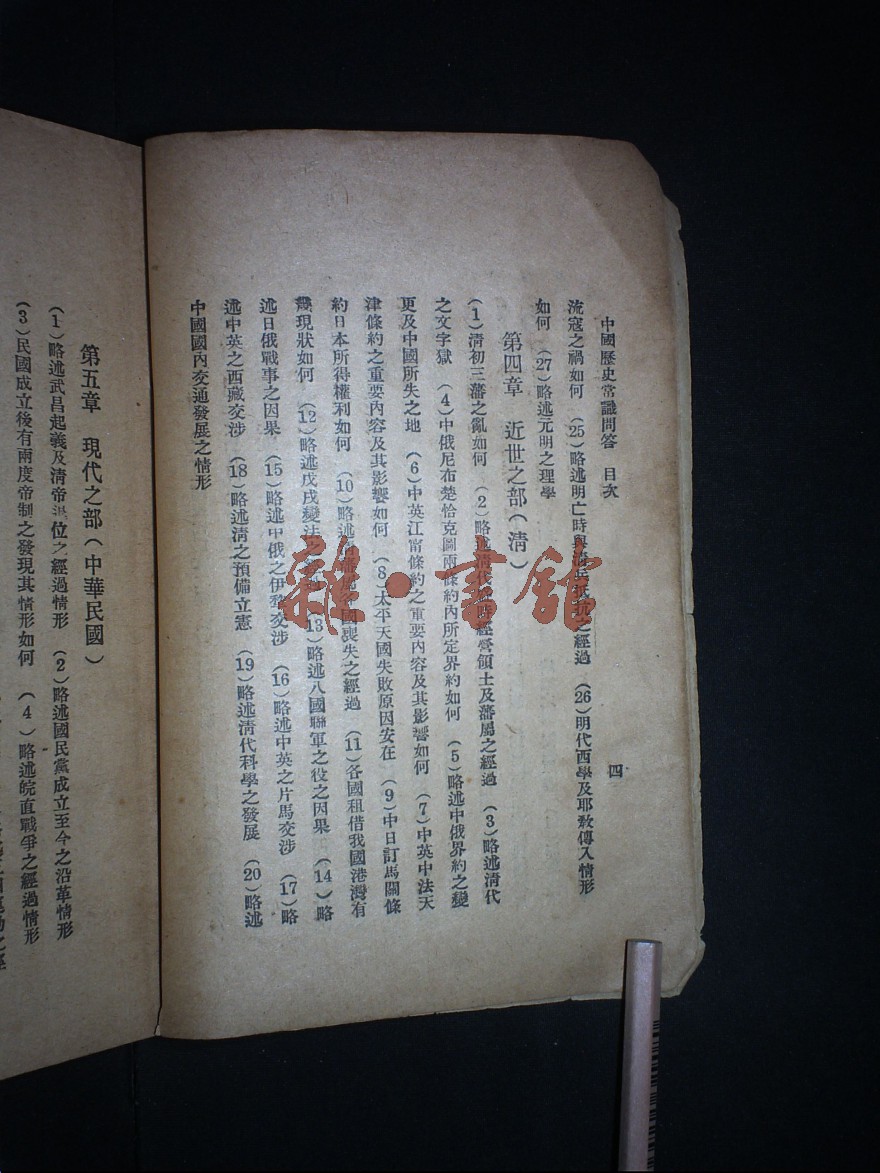 中國歷史常識問答 目次
四
流寇之禍如何 (25)略述明亡時與清兵抵抗之經過 (26)明代西學及耶敎傳入情形
如何 (27)略述元明之理學
第四章 近世之部(清)
(1)清初三藩之亂如何 (2)略述清代 經營領土及藩屬之經過 (3)略述清代
之文字獄 (4)中俄尼布楚恰克圖兩條約內所定界約如何 (5)略述中俄界約之變
更及中國所失之地 (6)中英江甯條約之重要內容及其影響如何 (7)中英中法天
津條約之重要內容及其影響如何 (8)太平天國失敗原因安在 (9)中日訂馬關條
約日本所得權利如何 (10)略述 國喪失之經過 (11)各國租借我國港灣有
現狀如何 (12)略述戊戌變法之 (13)略述八國聯軍之役之因果 (14)略
述日俄戰事之因果 (15)略述中俄之伊犂交涉 (16)略述中英之片馬交涉 (17)略
述中英之西藏交涉 (18)略述清之預備立憲 (19)略述清代科學之發展 (20)略述
中國國內交通發展之情形
第五章 現代之部(中華民國)
(1)略述武昌起義及清帝退位之經過情形 (2)略述國民黨成立至今之沿革情形
(3)民國成立後有兩度帝制之發現其情形如何 (4)略述皖直戰爭之經過情形
雜·書館